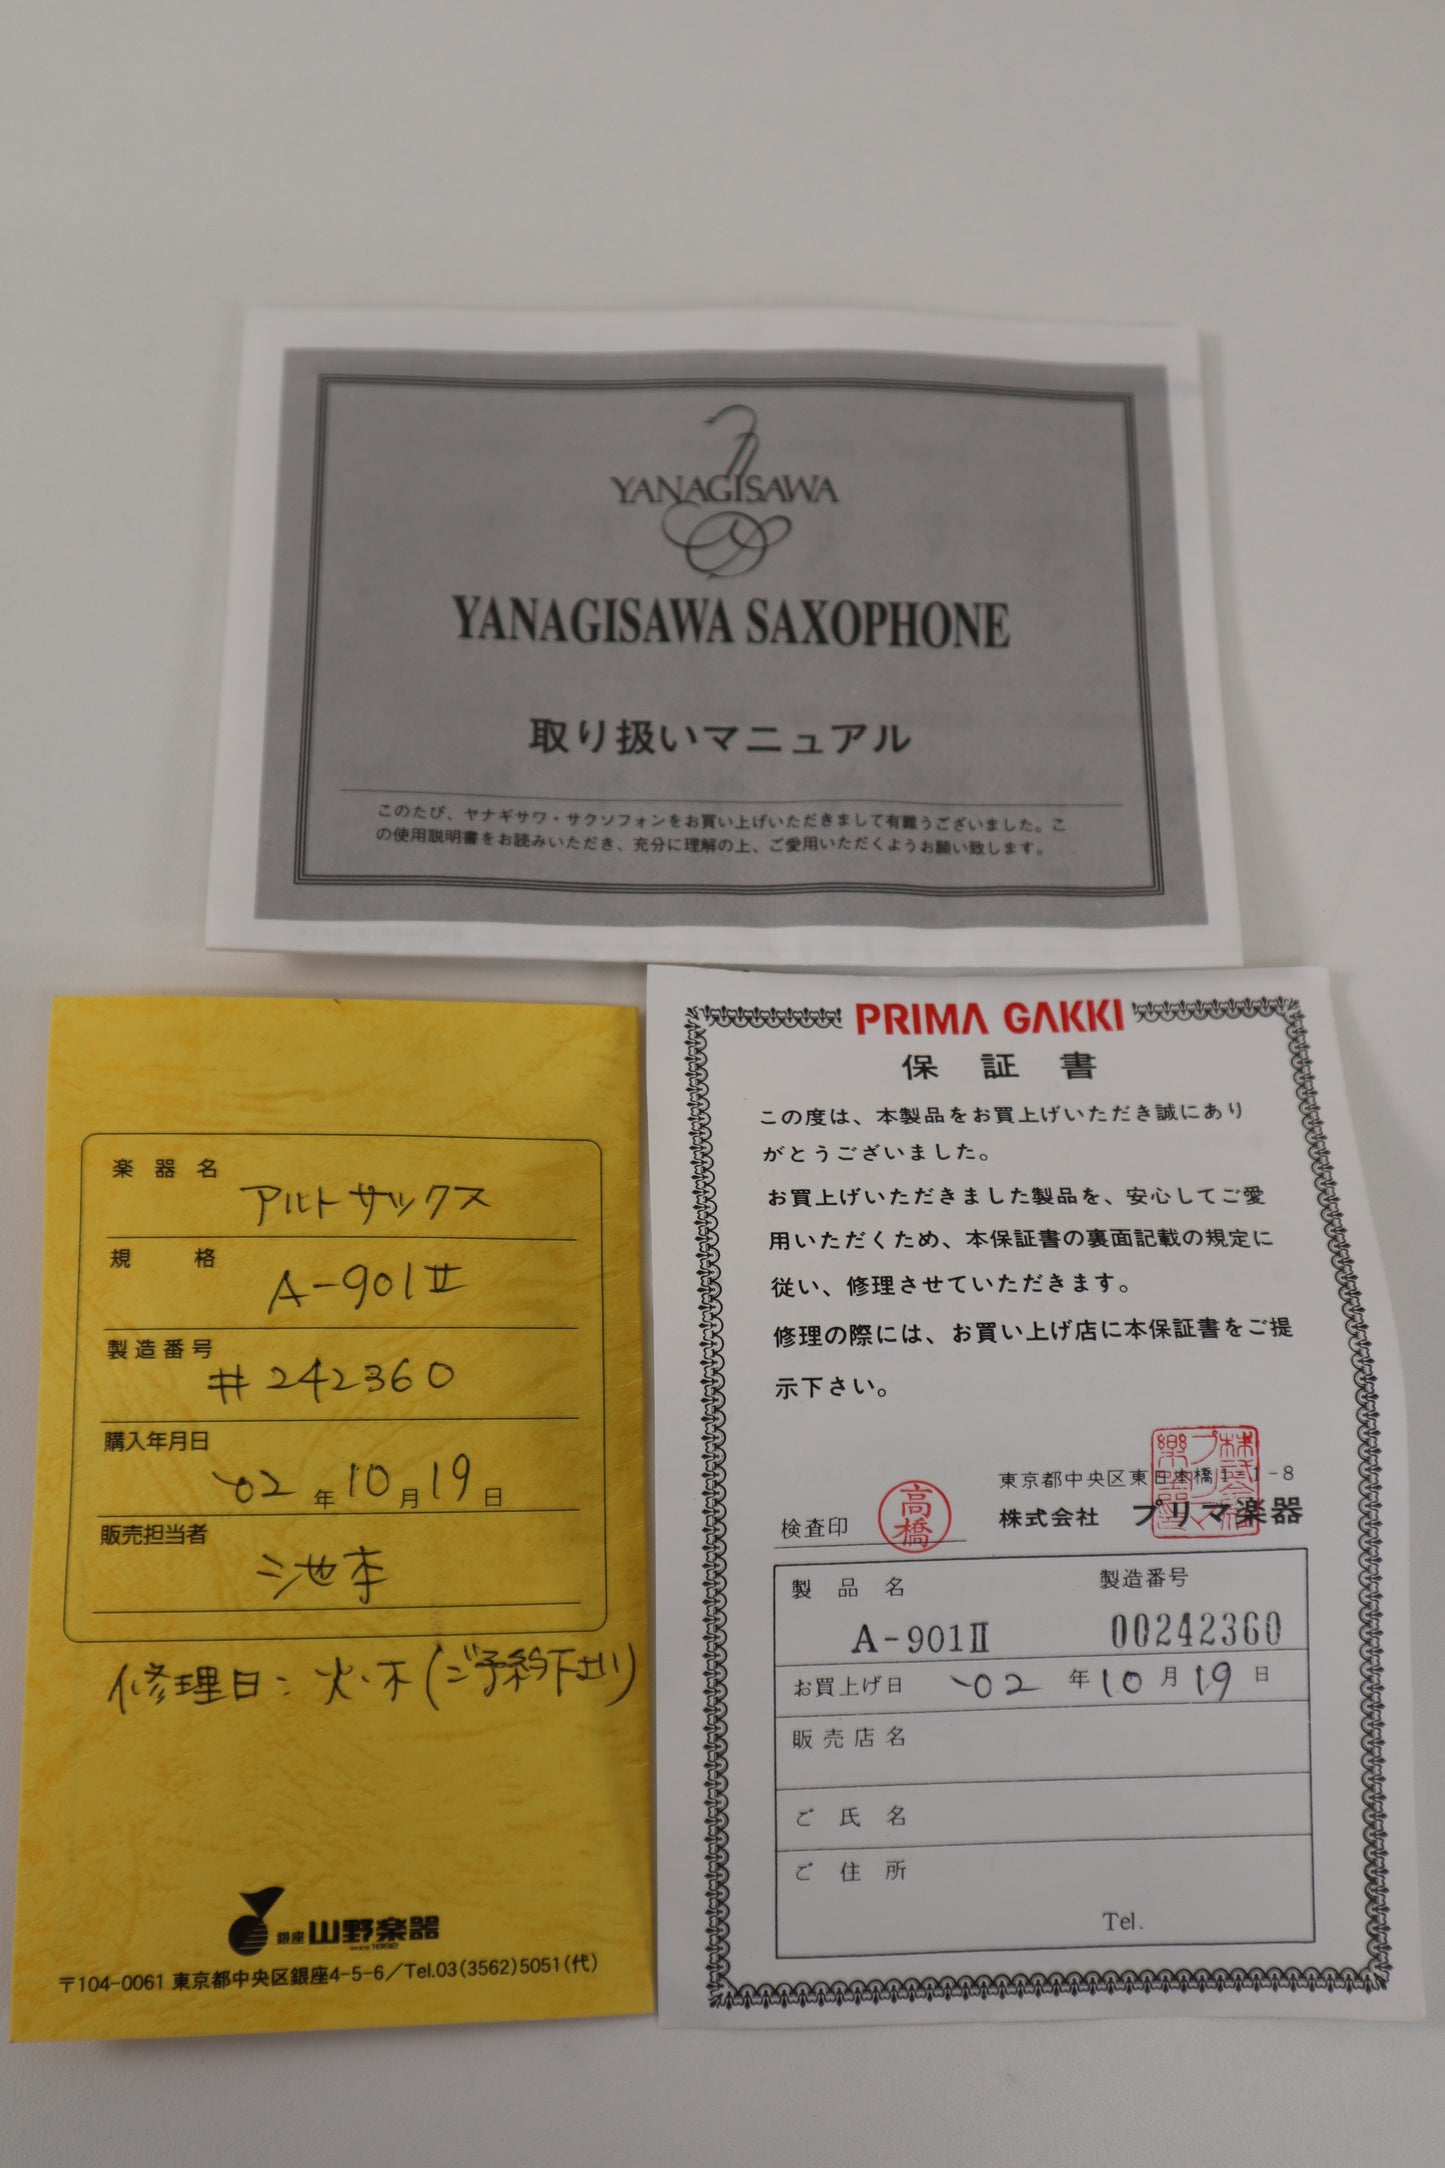 YANAGISAWA
YANAGISAWA SAXOPHONE
取り扱いマニュアル
このたび、ヤナギサワ・サクソフォンをお買い上げいただきまして有難うございました。こ
の使用説明書をお読みいただき、充分に理解の上、ご愛用いただくようお願い致します。
楽器名 アルトサックス
規格 A-901II
製造番号 #242360
購入年月日 '02年10月19日
販売担当者
修理日:火・木(ご予約下さい)
銀座 山野楽器
SINCE 1892
〒104-0061 東京都中央区銀座4-5-6/Tel.03(3562)5051(代)
PRIMA GAKKI
保証書
この度は、本製品をお買上げいただき誠にあり
がとうございました。
お買上げいただきました製品を、安心してご愛
用いただくため、本保証書の裏面記載の規定に
従い、修理させていただきます。
修理の際には、お買い上げ店に本保証書をご提
示下さい。
東京都中央区東日本橋1-1-8
検査印 高橋 株式会社 プリマ楽器
製品名 製造番号
A-901II 00242360
お買上げ日 '02年10月19日
販売店名
ご氏名
ご住所
Tel.